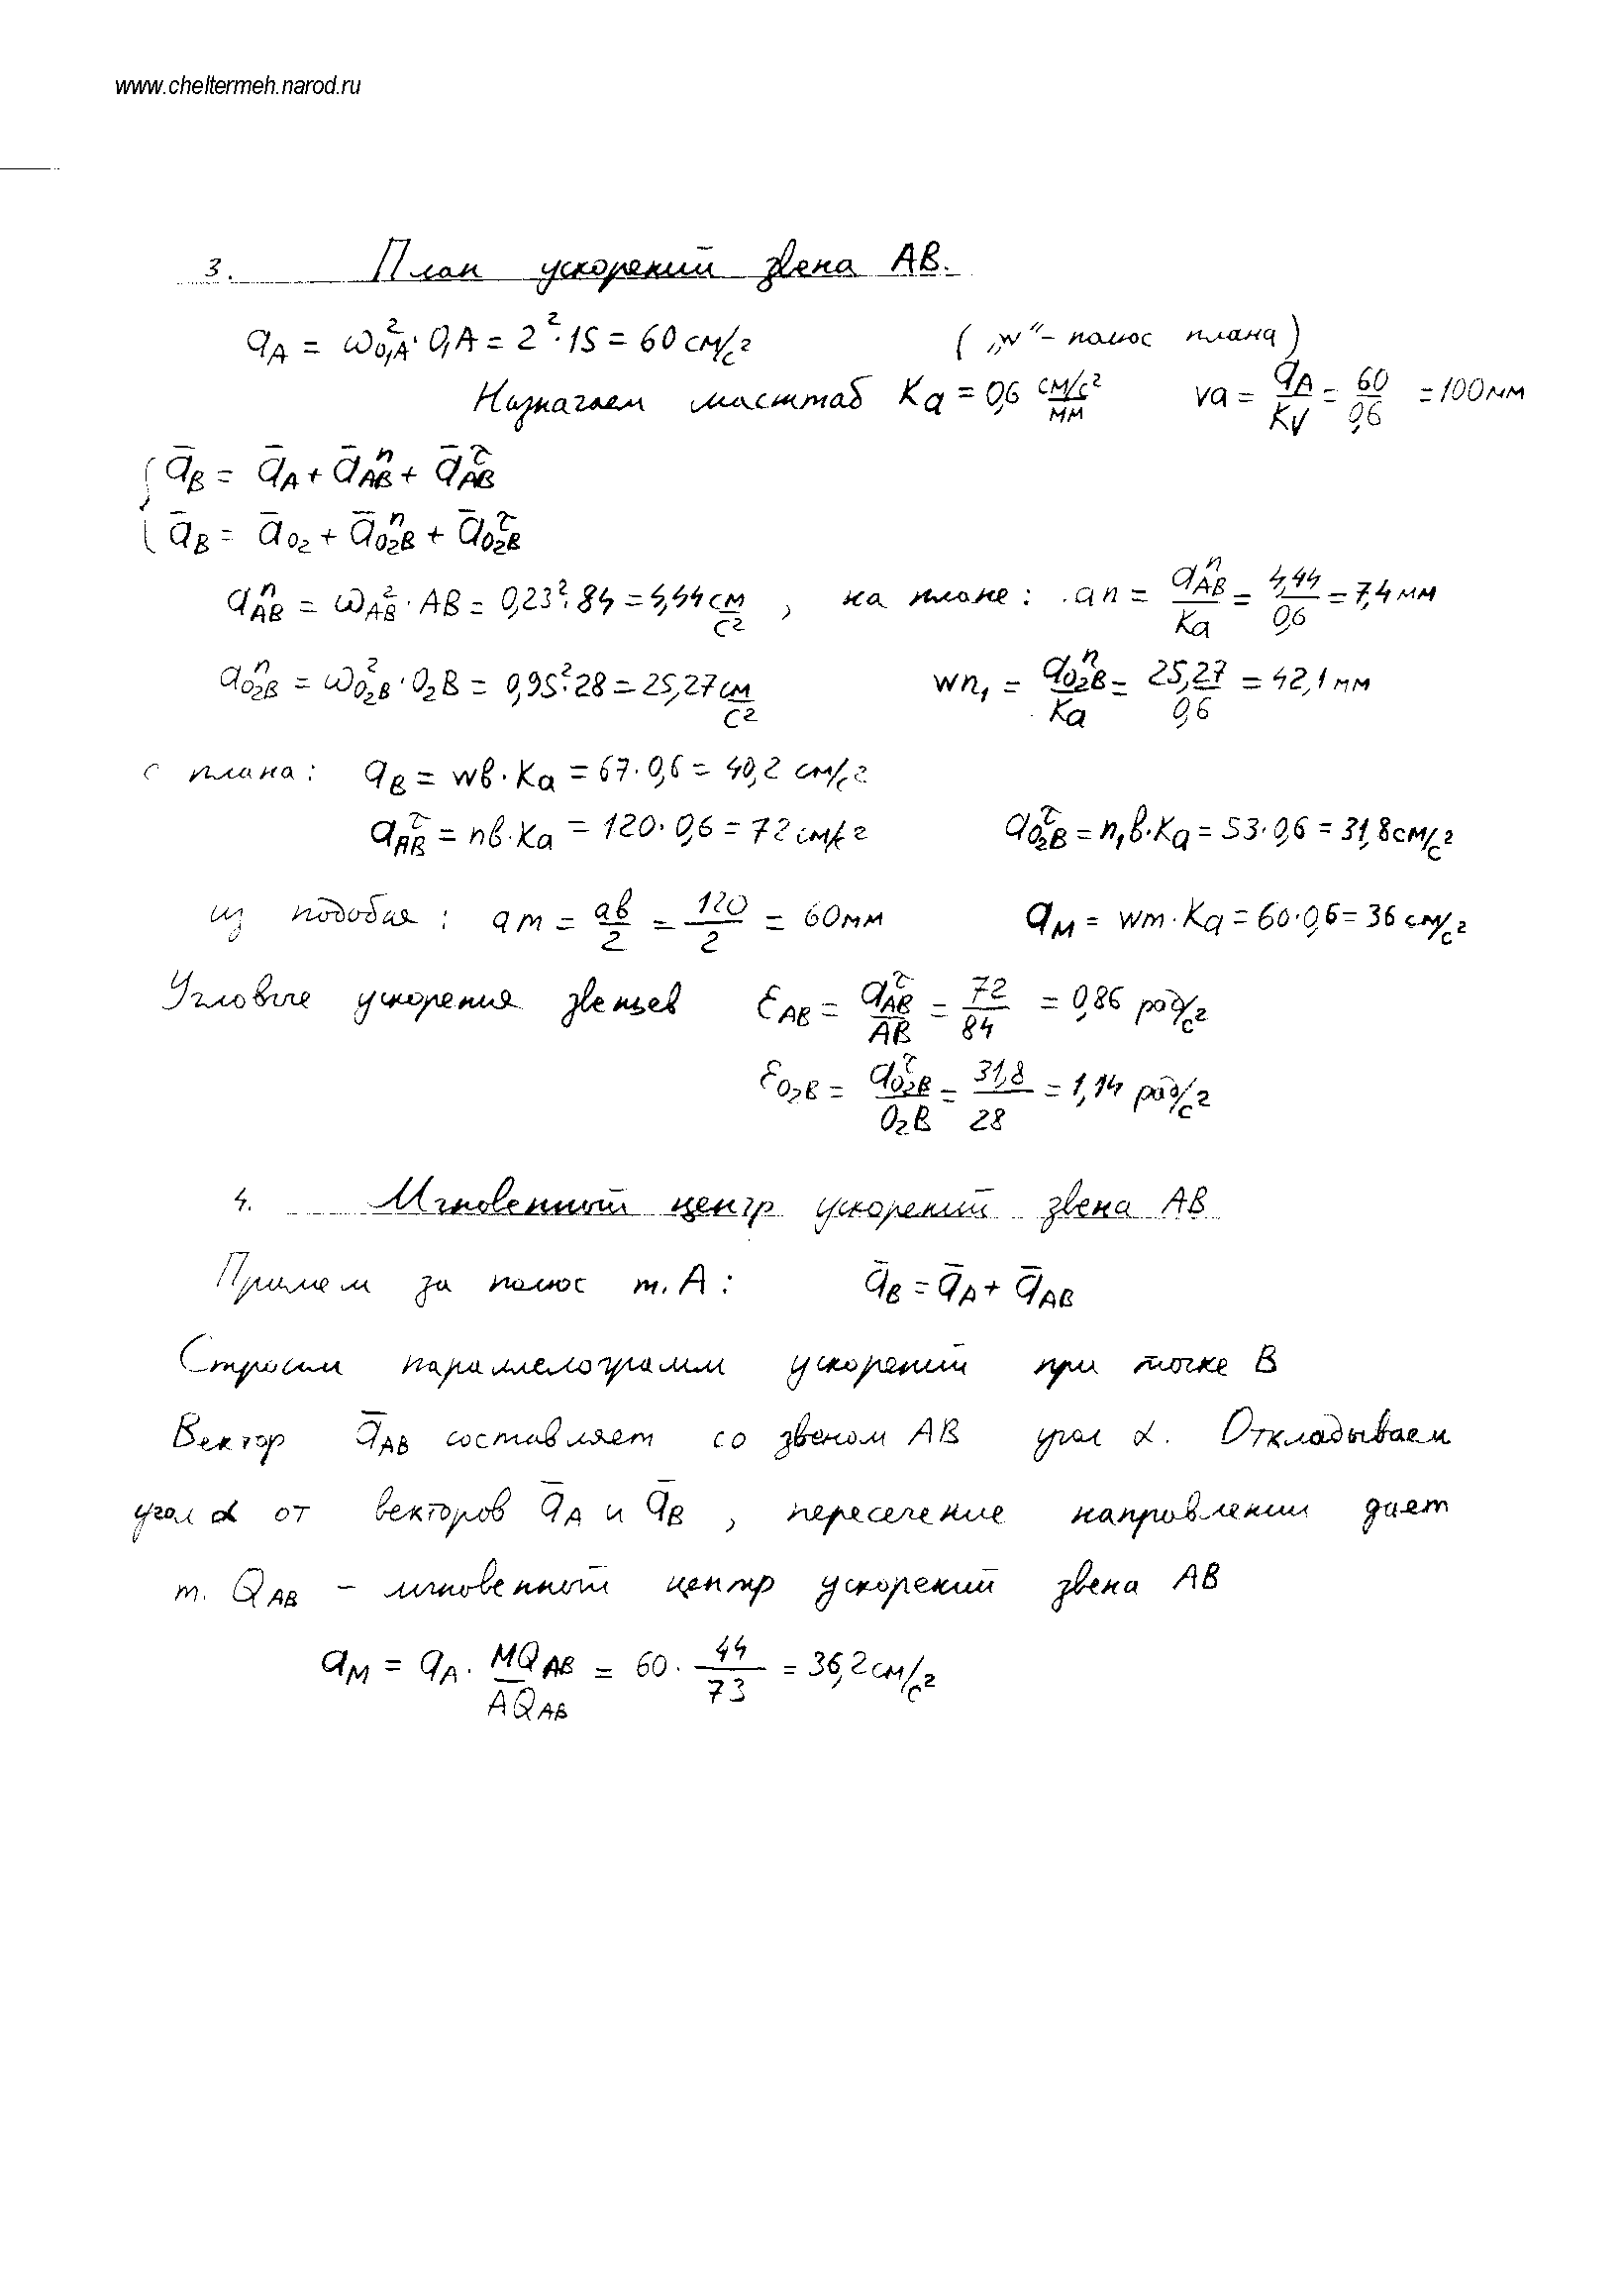 www.cheltermeh.narod.ru
3. План ускорений звена AB.
a_A = ω²_{O₁A} · O₁A = 2² · 15 = 60 см/с² („w“ - полюс плана)
Назначаем масштаб K_a = 0,6 (см/с²)/мм va = a_A/K_V = 60/0,6 = 100 мм
{ ā_B = ā_A + ā^n_{AB} + ā^τ_{AB}
{ ā_B = ā_{O₂} + ā^n_{O₂B} + ā^τ_{O₂B}
a^n_{AB} = ω²_{AB} · AB = 0,23² · 84 = 4,44 см/с², на плане: an = a^n_{AB}/K_a = 4,44/0,6 = 7,4 мм
a^n_{O₂B} = ω²_{O₂B} · O₂B = 0,95² · 28 = 25,27 см/с² wn₁ = a^n_{O₂B}/K_a = 25,27/0,6 = 42,1 мм
с плана: a_B = wв · K_a = 67 · 0,6 = 40,2 см/с²
a^τ_{AB} = nв · K_a = 120 · 0,6 = 72 см/с² a^τ_{O₂B} = n₁в · K_a = 53 · 0,6 = 31,8 см/с²
из подобия: am = aв/2 = 120/2 = 60 мм a_M = wm · K_a = 60 · 0,6 = 36 см/с²
Угловые ускорения звеньев ε_{AB} = a^τ_{AB}/AB = 72/84 = 0,86 рад/с²
ε_{O₂B} = a^τ_{O₂B}/O₂B = 31,8/28 = 1,14 рад/с²
4. Мгновенный центр ускорений звена AB
Примем за полюс т. A: ā_B = ā_A + ā_{AB}
Строим параллелограмм ускорений при точке B
Вектор ā_{AB} составляет со звеном AB угол α. Откладываем
угол α от векторов ā_A и ā_B, пересечение направлении дает
т. Q_{AB} - мгновенный центр ускорений звена AB
a_M = a_A · MQ_{AB}/AQ_{AB} = 60 · 44/73 = 36,2 см/с²